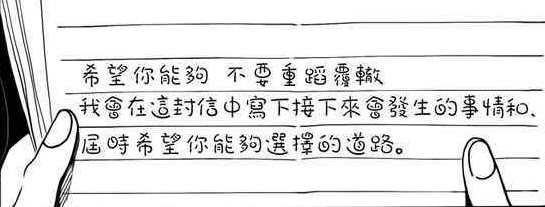 希望你能夠 不要重蹈覆轍
我會在這封信中寫下接下來會發生的事情和、
屆時希望你能夠選擇的道路。